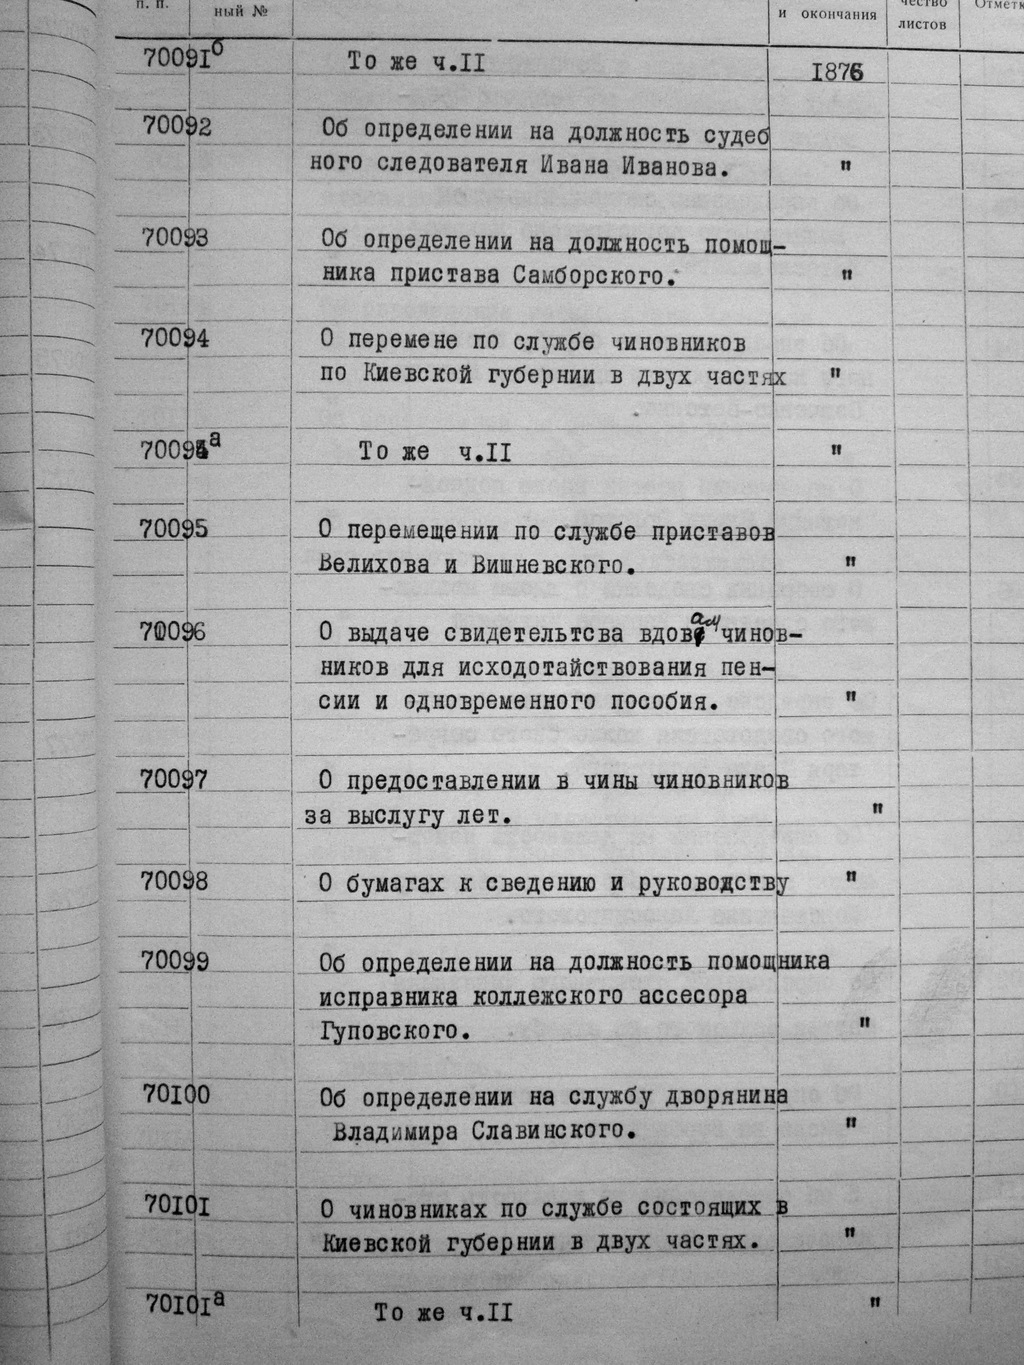 п. п. ный № и окончания чество листов Отметк
70091б То же ч.II 1876
70092 Об определении на должность судеб
ного следователя Ивана Иванова. "
70093 Об определении на должность помощ-
ника пристава Самборского. "
70094 О перемене по службе чиновников
по Киевской губернии в двух частях "
70094а То же ч.II "
70095 О перемещении по службе приставов
Велихова и Вишневского. "
70096 О выдаче свидетельтсва вдовам чинов-
ников для исходотайствования пен-
сии и одновременного пособия. "
70097 О предоставлении в чины чиновников
за выслугу лет. "
70098 О бумагах к сведению и руководству "
70099 Об определении на должность помощника
исправника коллежского ассесора
Гуповского. "
70100 Об определении на службу дворянина
Владимира Славинского. "
70101 О чиновниках по службе состоящих в
Киевской губернии в двух частях. "
70101а То же ч.II "